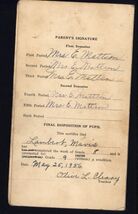 PARENT'S SIGNATURE
First Semester
First Period Mrs E Mattson
Second Period Mrs E Mattson
Third Period Mrs E Mattson
Second Semester
Fourth Period Mrs E Mattson
Fifth Period Mrs E Mattson
Sixth Period
FINAL DISPOSITION OF PUPIL
This certifies that
Lambert, Mavis
the work of Grade 8
Grade 9
Date May 28, 1936
Olive L. Cleary
Teacher